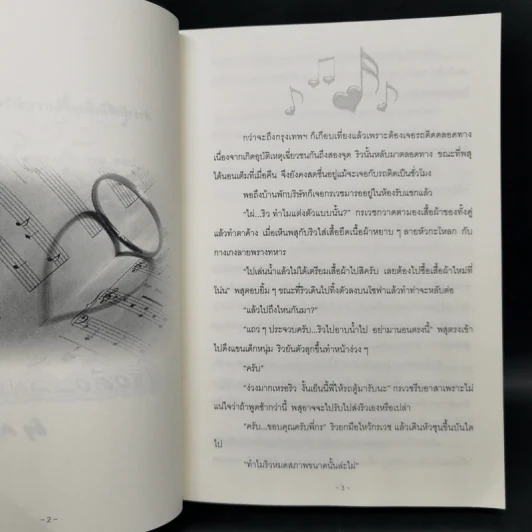 กว่าจะถึงกรุงเทพฯ ก็เกือบเที่ยงแล้วเพราะต้องเจอรถติดตลอดทาง
เนื่องจากเกิดอุบัติเหตุเฉี่ยวชนกันถึงสองจุด ริวนั้นหลับมาตลอดทาง ขณะที่พสุ
ได้นอนเต็มที่เมื่อคืน จึงยังคงสดชื่นอยู่แม้จะเจอกับรถติดเป็นชั่วโมง
พอถึงบ้านพักบริษัทก็เจอกรเวชมารออยู่ในห้องรับแขกแล้ว
"ไผ่...ริว ทำไมแต่งตัวแบบนั้น?" กรเวชกวาดตามองเสื้อผ้าของทั้งคู่
แล้วทำตาค้าง เมื่อเห็นพสุกับริวใส่เสื้อยืดเนื้อผ้าหยาบ ๆ ลายหัวกะโหลก กับ
กางเกงลายพรางทหาร
"ไปเล่นน้ำแล้วไม่ได้เตรียมเสื้อผ้าไปสิครับ เลยต้องไปซื้อเสื้อผ้าใหม่ที่
โน่น" พสุตอบยิ้ม ๆ ขณะที่ริวเดินไปทิ้งตัวลงบนโซฟาแล้วทำท่าจะหลับต่อ
"แล้วไปถึงไหนกันมา?"
"แถว ๆ ประจวบครับ...ริวไปอาบน้ำไป อย่ามานอนตรงนี้" พสุตรงเข้า
ไปดึงแขนเด็กหนุ่ม ริวยันตัวลุกขึ้นทำหน้าง่วง ๆ
"ครับ"
"ง่วงมากเหรอริว งั้นเย็นนี้พี่ให้รถตู้มารับนะ" กรเวชรีบอาสาเพราะไม่
แน่ใจว่าถ้าพูดช้ากว่านี้ พสุอาจจะไปรับไปส่งริวเองหรือเปล่า
"ครับ...ขอบคุณครับพี่กร" ริวยกมือไหว้กรเวช แล้วเดินหัวซุนขึ้นบันได
ไป
"ทำไมริวหมดสภาพขนาดนั้นล่ะไผ่"
-2-
-3-